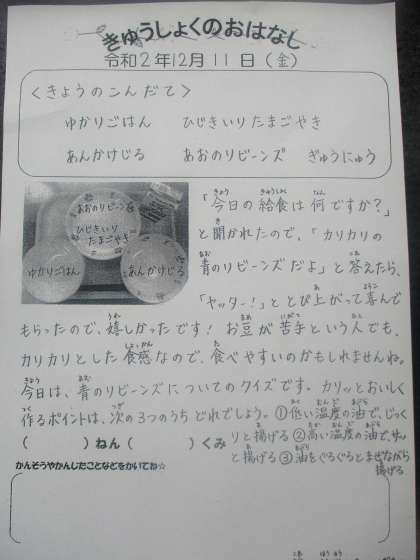 きゅうしょくのおはなし
令和2年12月11日(金)
<きょうのこんだて>
ゆかりごはん ひじきいりたまごやき
あんかけじる あおのりビーンズ ぎゅうにゅう
あおのりビーンズ
ひじきいり
たまごやき
ゆかりごはん
あんかけじる
「今日の給食は何ですか?」
と聞かれたので、「カリカリの
青のりビーンズだよ」と答えたら、
「ヤッター!」ととび上がって喜んで
もらったので、嬉しかったです!お豆が苦手という人でも、
カリカリとした食感なので、食べやすいのかもしれませんね。
今日は、青のりビーンズについてのクイズです。カリッとおいしく
作るポイントは、次の3つのうちどれでしょう。①低い温度の油で、じっく
りと揚げる②高い温度の油で、サッ
と揚げる③油をぐるぐるとまぜながら
揚げる
( )ねん( )くみ
かんそうやかんしたことなどをかいてね☆